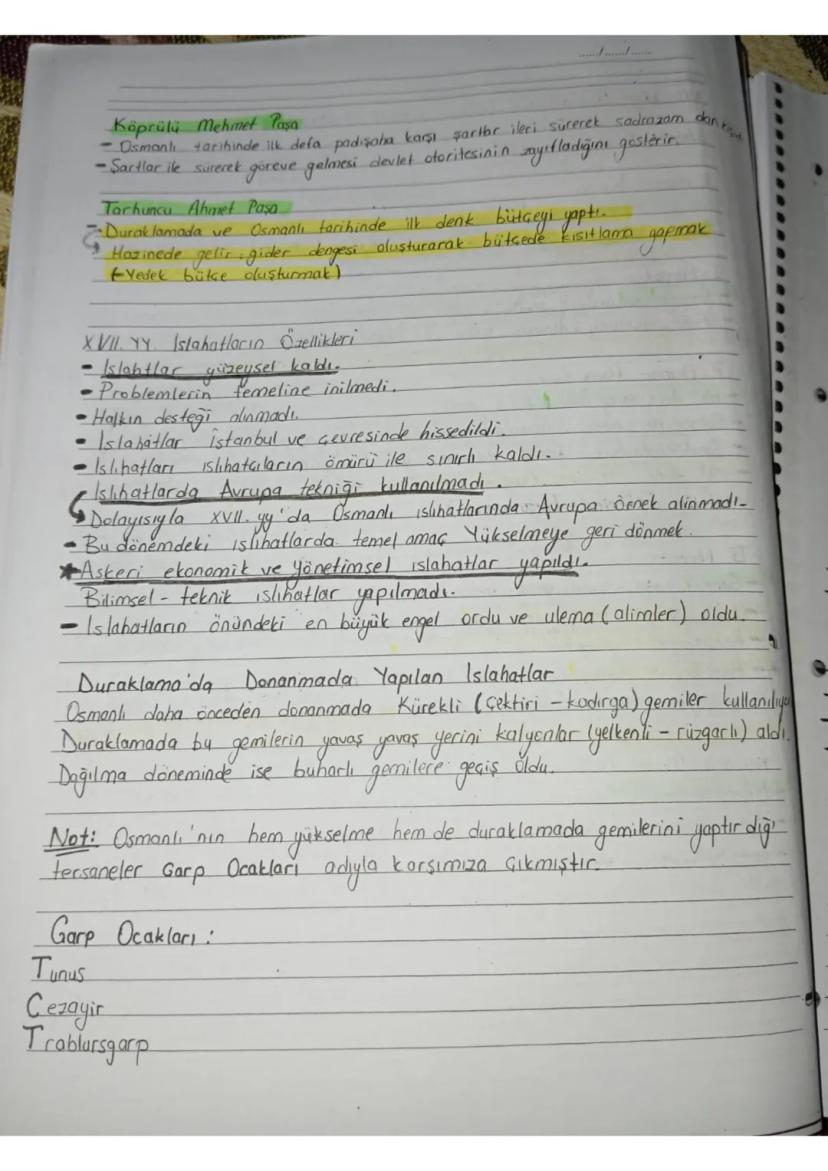 ....../....../......
Köprülü Mehmet Paşa
- Osmanlı tarihinde ilk defa padişaha karşı şartlar ileri sürerek sadrazam
- Şartlar ile sürerek göreve gelmesi devlet otoritesinin zayıfladığını gösterir.
Tarhuncu Ahmet Paşa
- Duraklamada ve Osmanlı tarihinde ilk denk bütçeyi yaptı.
Hazinede gelir gider dengesi oluşturarak bütçede kısıtlama yapmak
(-Yedek bütçe oluşturmak)
XVII. YY. Islahatların Özellikleri
- Islahtlar yüzeysel kaldı.
- Problemlerin temeline inilmedi.
- Halkın desteği alınmadı.
- Islahatlar İstanbul ve çevresinde hissedildi.
- Islıhatları ıslıhatçıların ömürü ile sınırlı kaldı.
Islıhatlarda Avrupa tekniği kullanılmadı.
Dolayısıyla XVII. yy'da Osmanlı ıslıhatlarında Avrupa örnek alınmadı-
- Bu dönemdeki ıslıhatlarda temel amaç Yükselmeye geri dönmek.
* Askeri ekonomik ve yönetimsel ıslahatlar yapıldı.
Bilimsel - teknik ıslıhatlar yapılmadı.
- Islahatların önündeki en büyük engel ordu ve ulema (alimler) oldu.
Duraklama'da Donanmada Yapılan Islahatlar
Osmanlı daha önceden donanmada Kürekli (çektiri - kadırga) gemiler kullanılıyo
Duraklamada bu gemilerin yavaş yavaş yerini kalyonlar (yelkenli - rüzgarlı) aldı.
Dağılma döneminde ise buharlı gemilere geçiş oldu.
Not: Osmanlı'nın hem yükselme hem de duraklamada gemilerini yaptırdığı
tersaneler Garp Ocakları adıyla karşımıza çıkmıştır.
Garp Ocakları :
Tunus
Cezayir
Trablursgarp